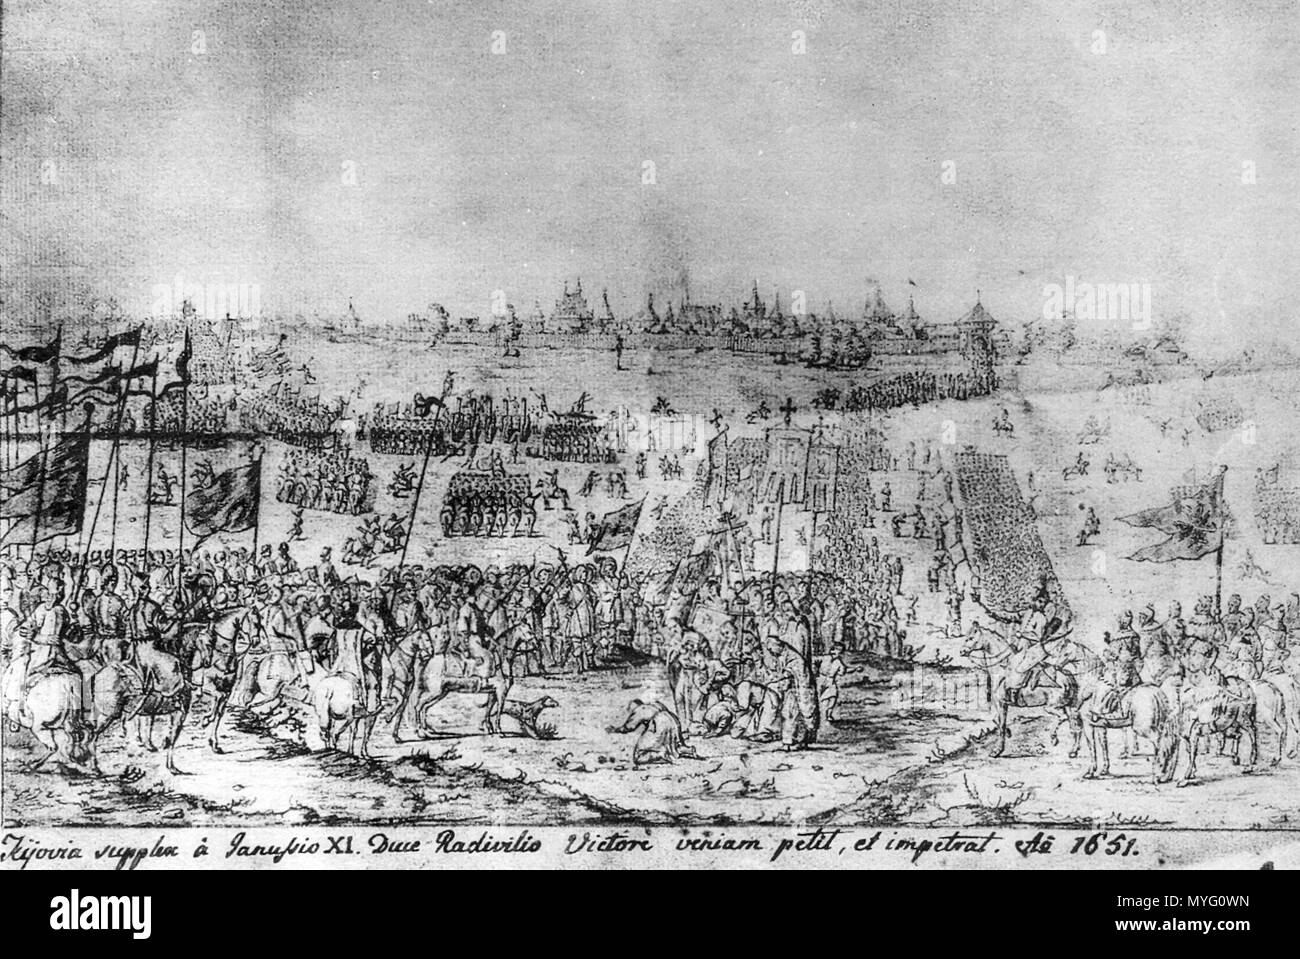 Kijovia supplex à Janussio XI. Duce Radivilio Victore veniam petit, et impetrat. Aō 1651.
alamy
Image ID: MYG0WN
www.alamy.com